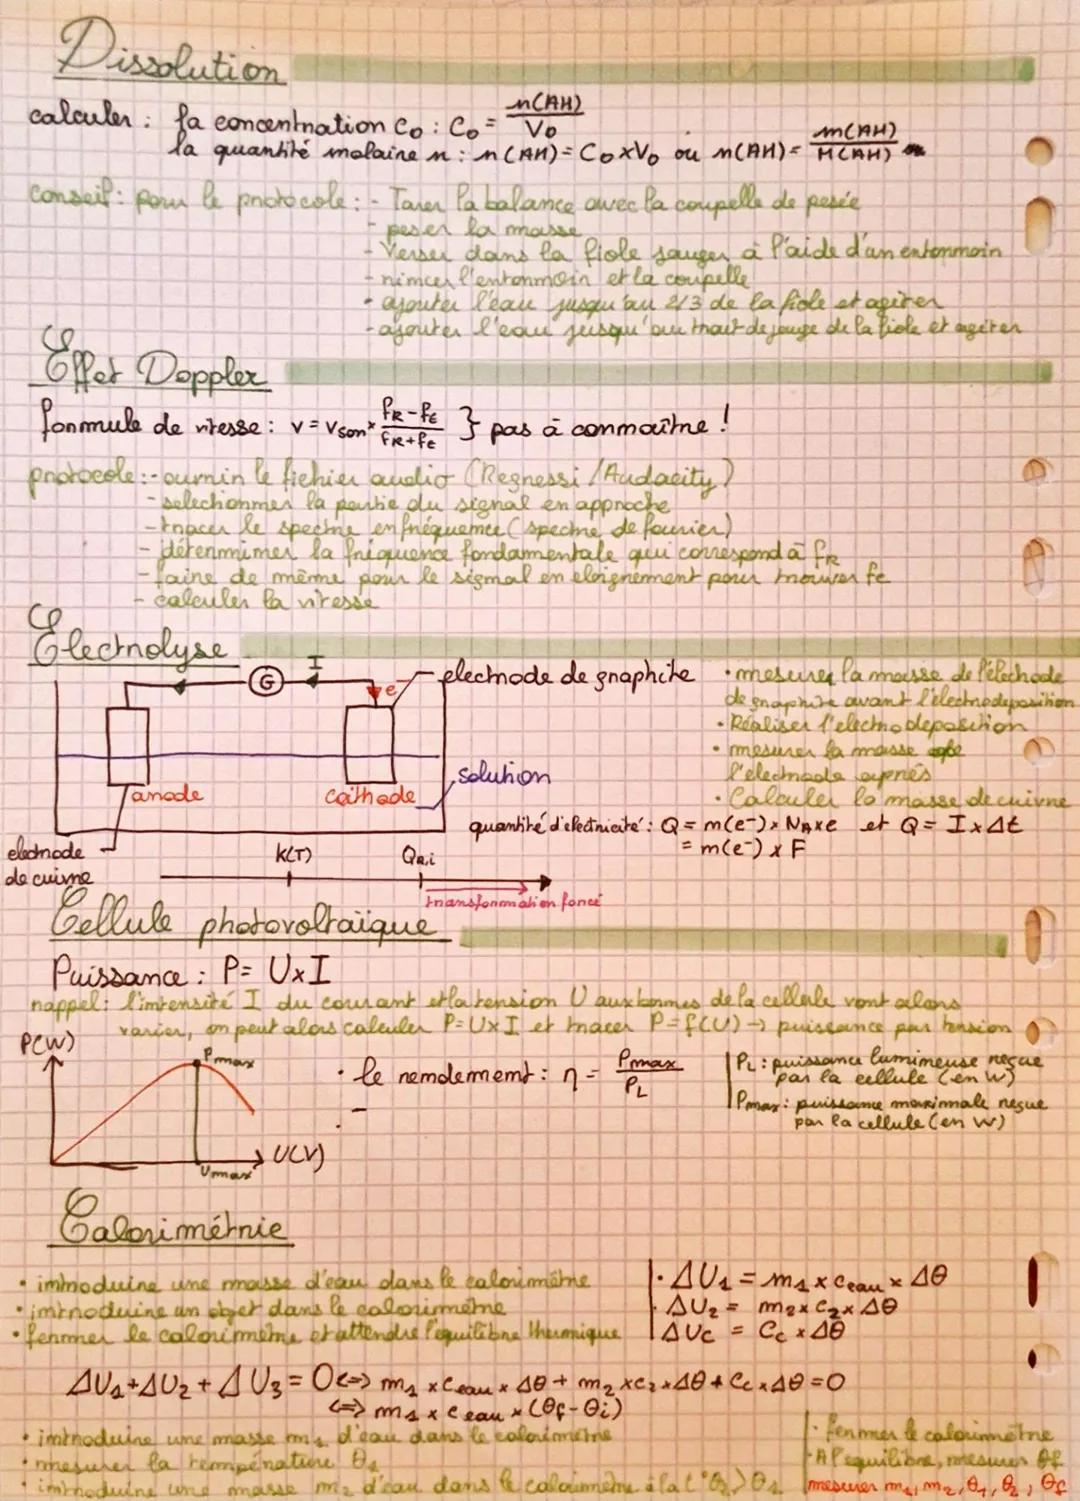 Dissolution
calculer : la concentration C₀ : C₀ = n(AH) / V₀
la quantité molaire n : n(AH) = C₀ x V₀ ou n(AH) = m(AH) / M(AH)
conseil : pour le protocole : - Tarer la balance avec la coupelle de pesée
- peser la masse
- Verser dans la fiole jauger à l'aide d'un entonnoir
- rincer l'entonnoir et la coupelle
- ajouter l'eau jusqu'au 2/3 de la fiole et agiter
- ajouter l'eau jusqu'au trait de jauge de la fiole et agiter
Effet Doppler
formule de vitesse : v = vson x (fR - fE) / (fR + fE) } pas à connaître !
protocole : - ouvrir le fichier audio (Regressi / Audacity)
- selectionner la partie du signal en approche
- tracer le spectre en fréquence (spectre de fourier)
- déterminer la fréquence fondamentale qui correspond à fR
- faire de même pour le signal en éloignement pour trouver fE
- calculer la vitesse
Electrolyse
G I e⁻
electrode de graphite
anode cathode solution
electrode de cuivre
• mesurer la masse de l'électrode
de graphite avant l'électrodeposition
• Réaliser l'electrodeposition
• mesurer la masse de
l'electrode après
• Calculer la masse de cuivre
quantité d'electricité : Q = n(e⁻) x NA x e et Q = I x Δt
= n(e⁻) x F
K(T) QR,i
transformation forcé
Cellule photovoltaïque
Puissance : P = U x I
rappel : l'intensité I du courant et la tension U aux bornes de la cellule vont alors
varier, on peut alors calculer P = U x I et tracer P = f(U) → puissance par tension
P(W)
Pmax
Umax U(V)
• le rendement : η = Pmax / PL
PL : puissance lumineuse reçue
par la cellule (en W)
Pmax : puissance maximale reçue
par la cellule (en W)
Calorimétrie
• introduire une masse d'eau dans le calorimètre
• introduire un objet dans le calorimètre
• fermer le calorimètre et attendre l'équilibre thermique
• ΔU₁ = m₁ x ceau x Δθ
• ΔU₂ = m₂ x c₂ x Δθ
ΔUc = Cc x Δθ
ΔU₁ + ΔU₂ + ΔU₃ = 0 <=> m₁ x ceau x Δθ + m₂ x c₂ x Δθ + Cc x Δθ = 0
<=> m₁ x ceau x (θf - θi)
• introduire une masse m₁ d'eau dans le calorimètre
• mesurer la température θ₁
• introduire une masse m₂ d'eau dans le calorimètre à la t° θ₂ > θ₁
• fermer le calorimètre
• A l'equilibre, mesurer θf
mesurer m₁, m₂, θ₁, θ₂, θf